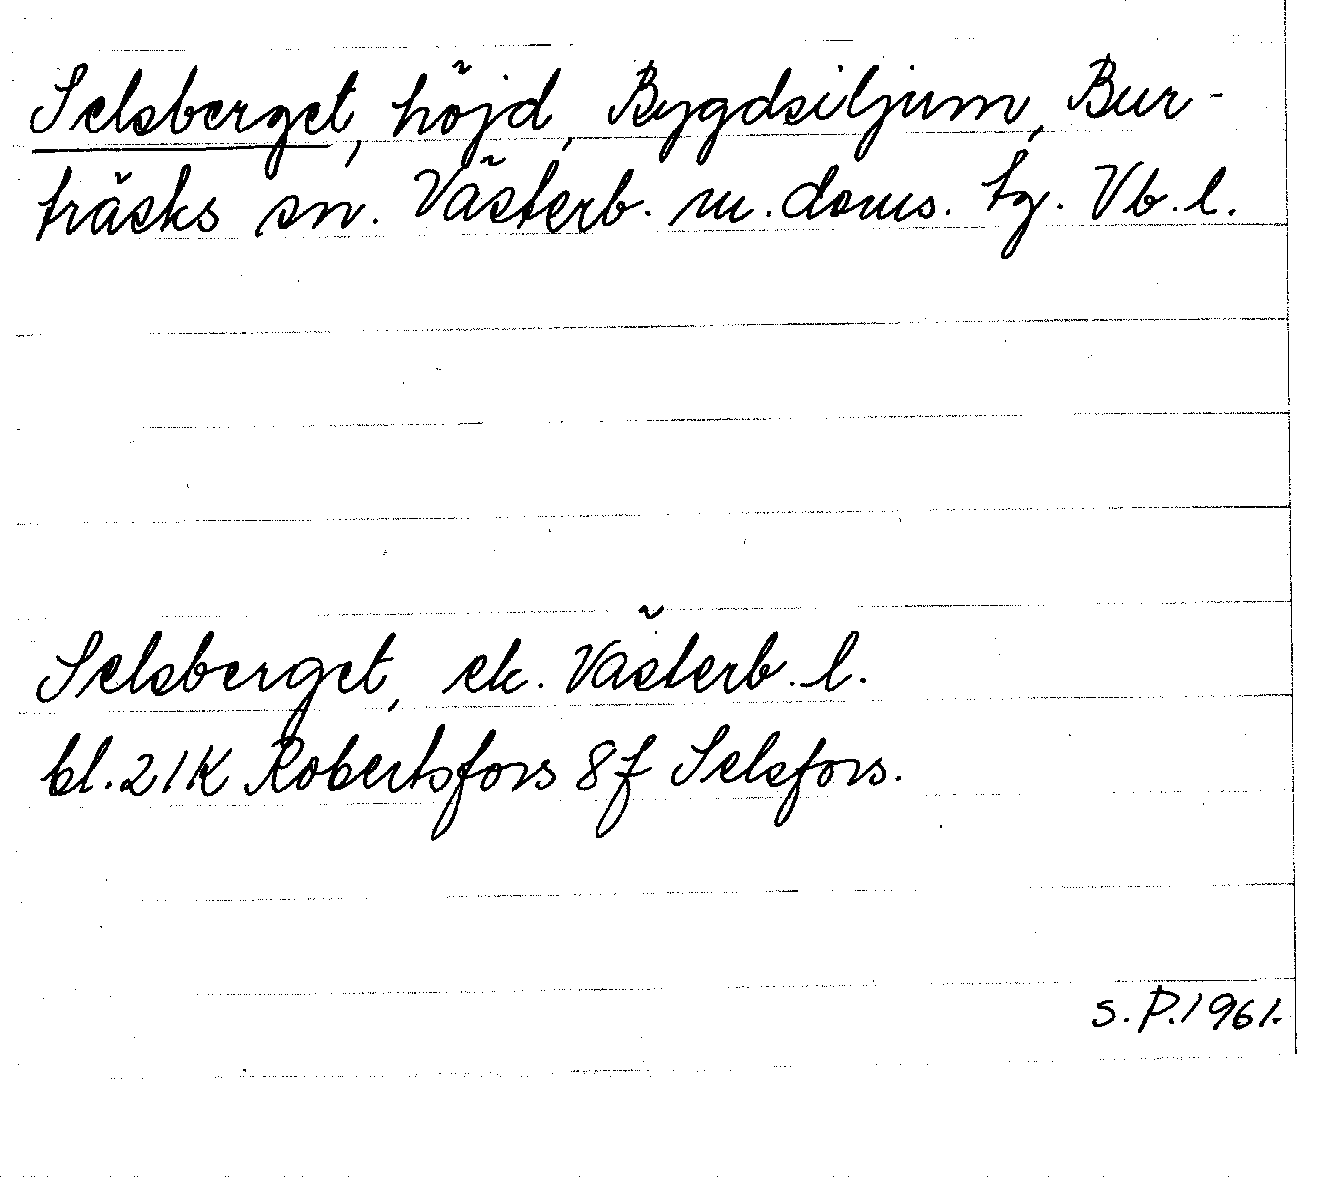 Selsberget, höjd, Bygdsiljum, Bur-
träsks sn. Västerb. m. doms. tg. Vb. l.
Selsberget, ek. Västerb. l.
bl. 21K Robertsfors 8f Selsfors.
S. P. 1961.